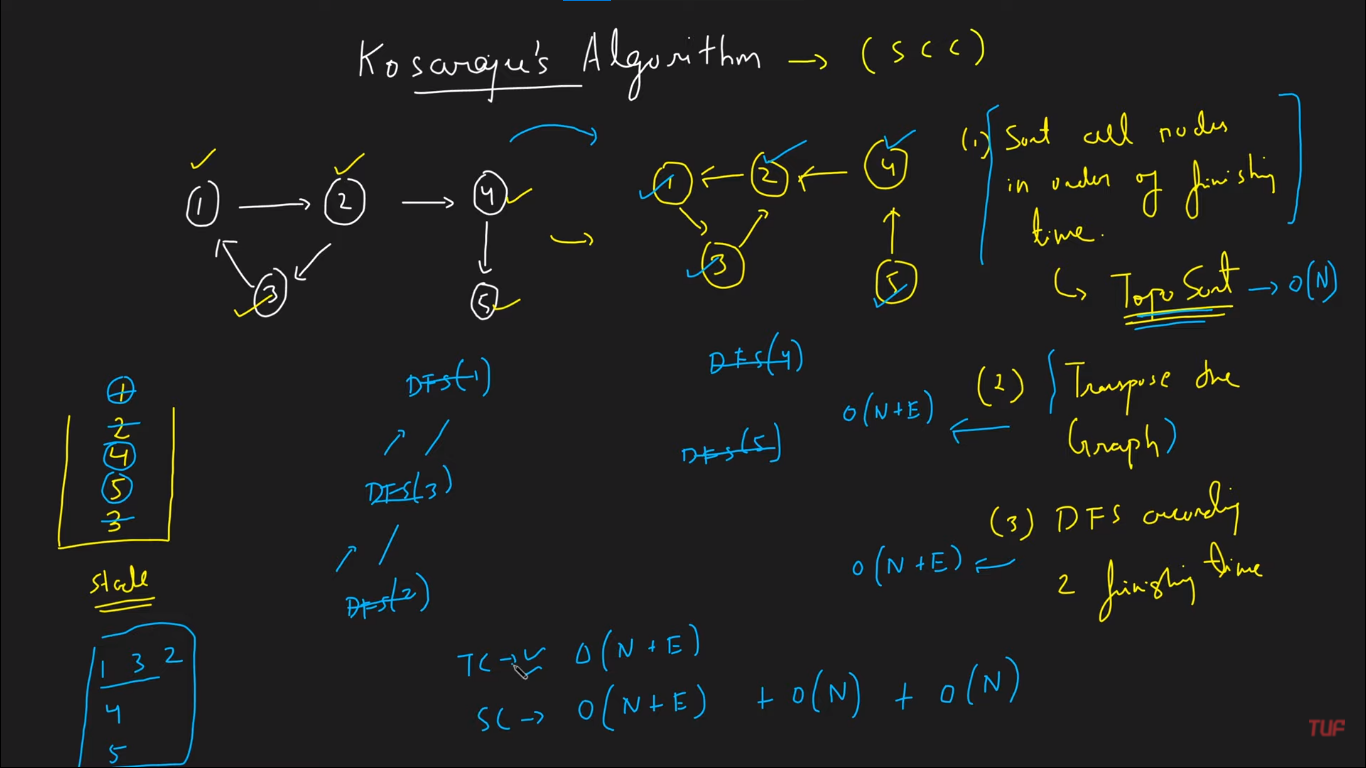 Kosaraju's Algorithm → (SCC)
1 2 4
3 5
1 2 4
3 5
(1) Sort all nodes
in order of finishing
time.
Topo Sort → O(N)
(2) Transpose the
Graph)
O(N+E) ←
(3) DFS according
2 finishing time
O(N+E) ←
DFS(1)
DFS(3)
DFS(2)
DFS(4)
DFS(5)
1
2
4
5
3
stack
1 3 2
4
5
TC → O(N+E)
SC → O(N+E) + O(N) + O(N)
TUF